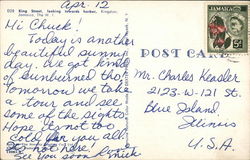 Apr. 12
D20 King Street, looking towards harbor, Kingston,
Jamaica, The W. I.
Hi Chuck!
Today is another
beautiful sunny
day. We got kind
of sunburned tho!
Tomorrow we take
a tour and see
some of the sights.
Hope it's not too
cold for you all.
It's hot here!
See you soon
POST CARD
JAMAICA
Mr. Charles Keasler
2123-W. 121 St.
Blue Island,
Illinois
U.S.A.